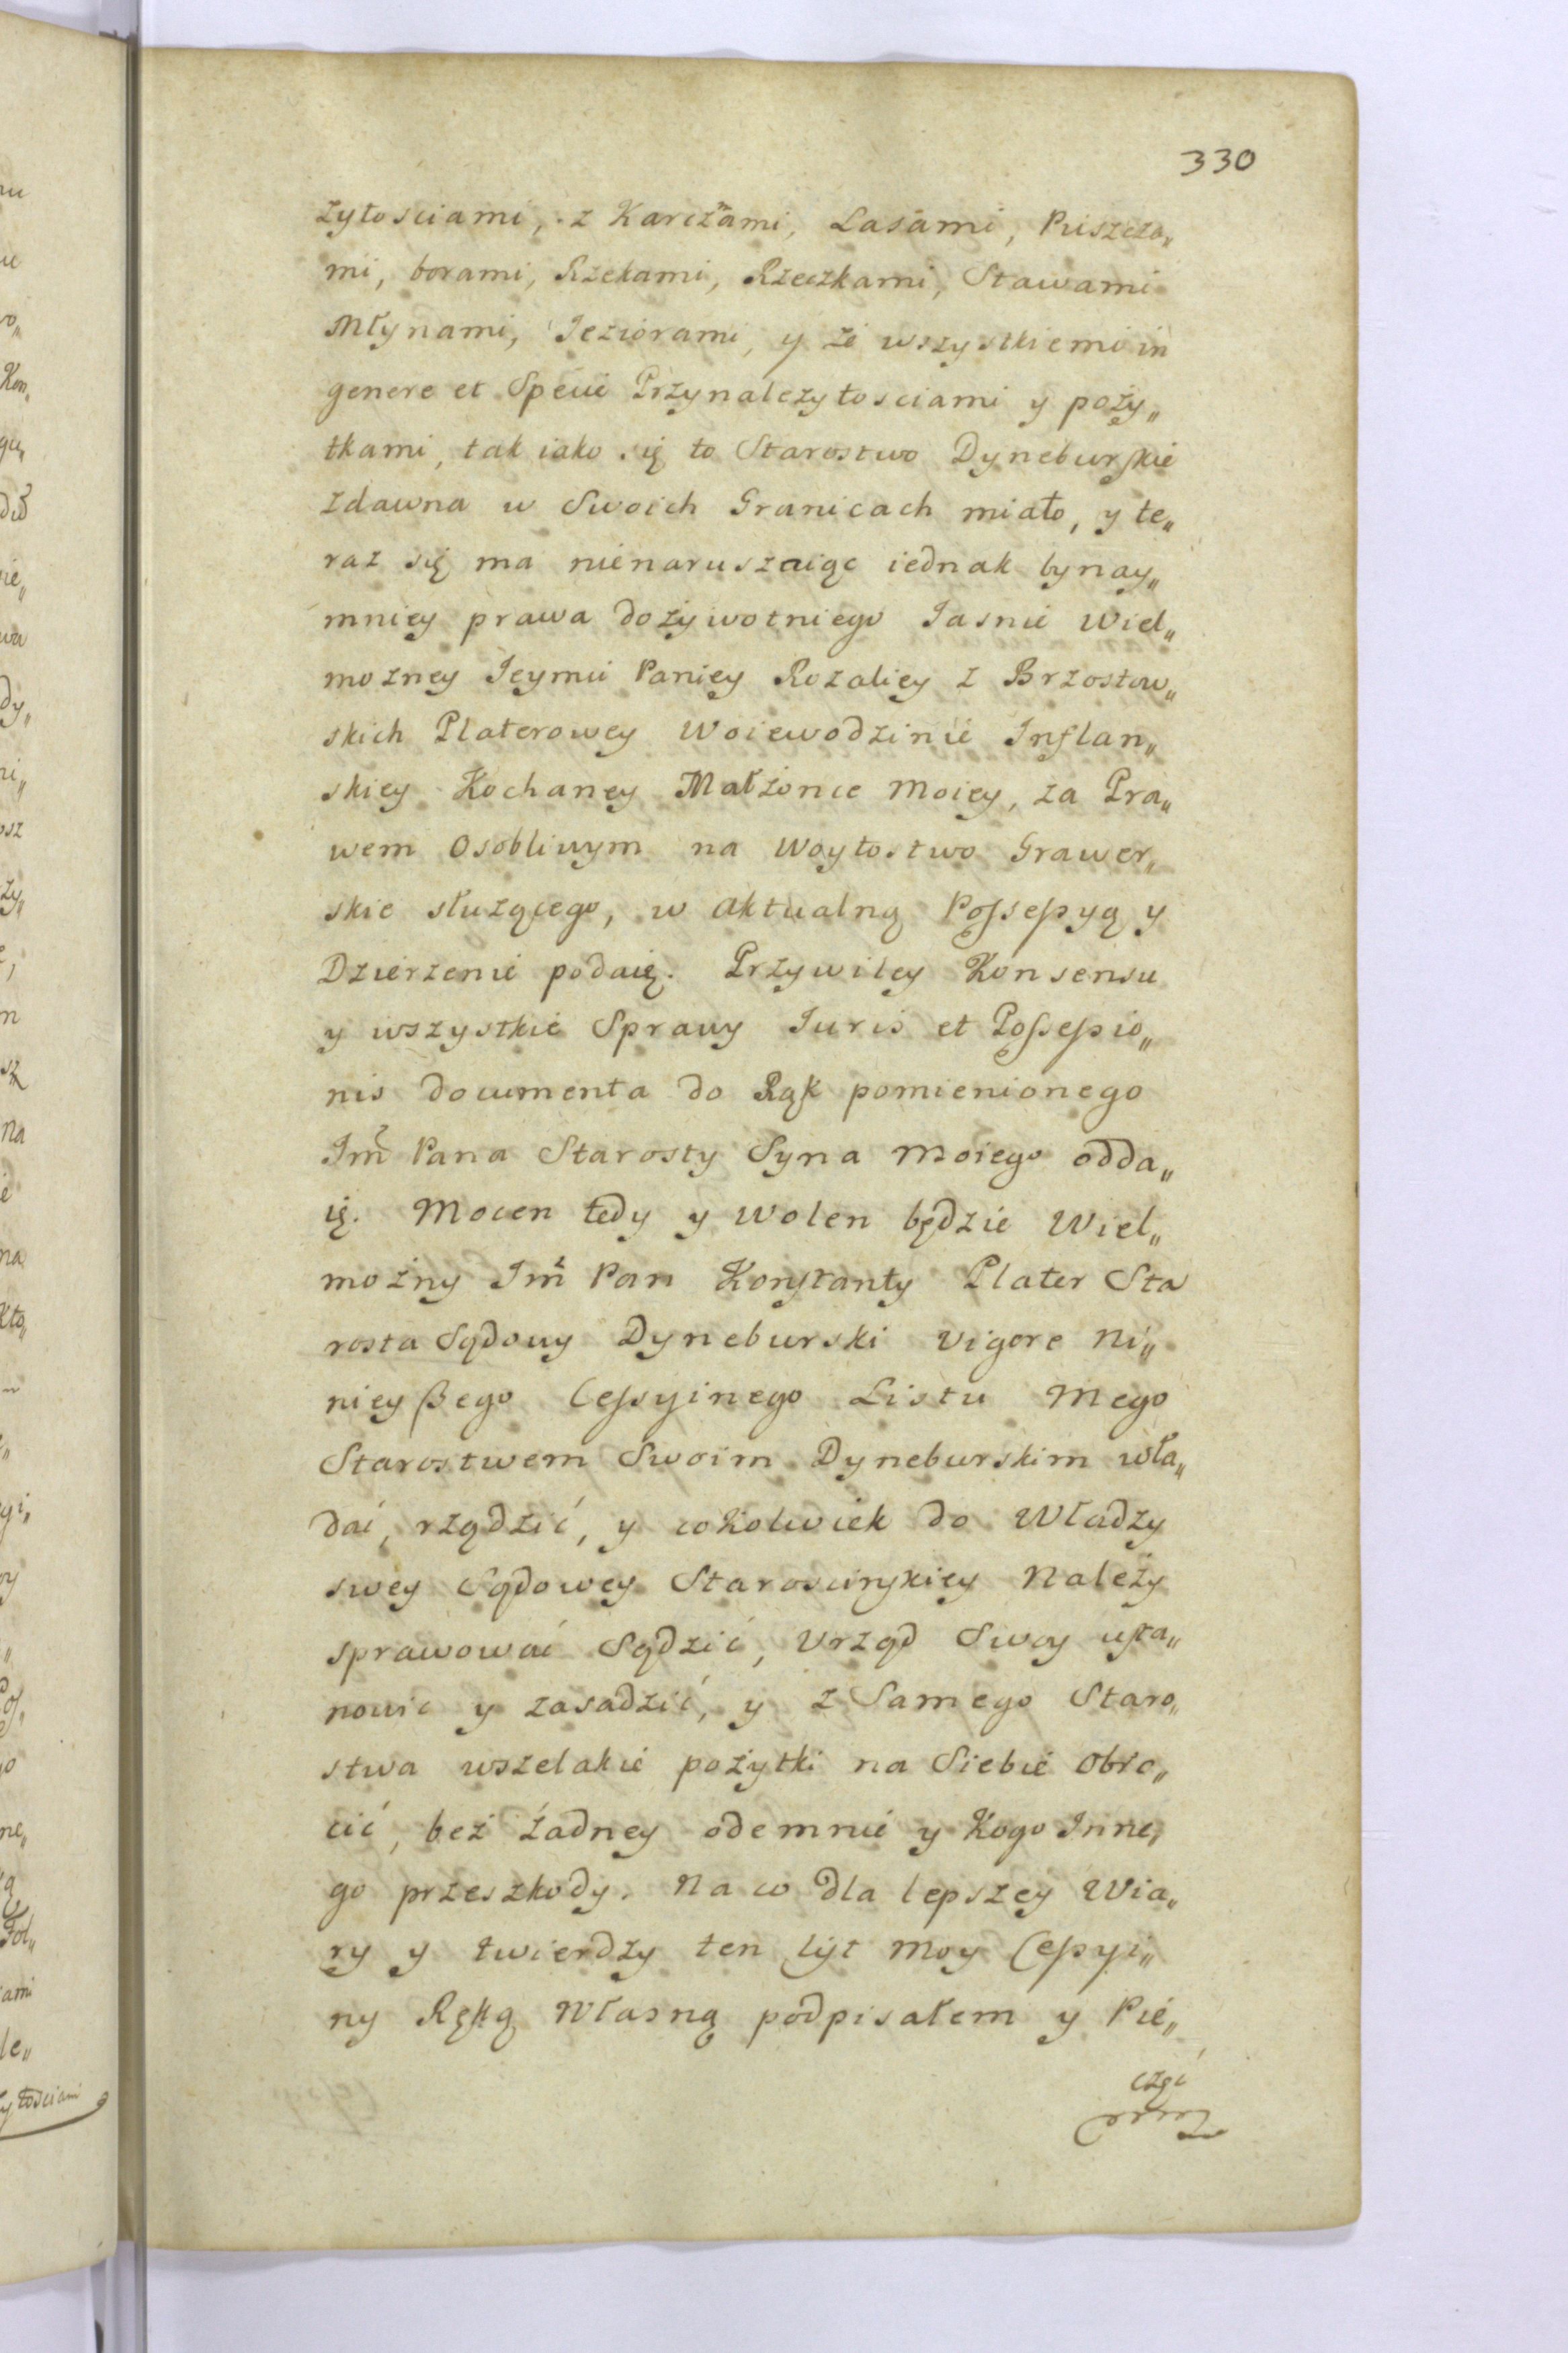 330
żytosciami, z Karczmami, Lasami, Puszcza„
mi, borami, Rzekami, Rzeczkami, Stawami
Młynami, Ieziorami, y ze wszystkiemi in
genere et Specie Przynależytosciami y poży„
tkami, tak iako się to Starostwo Dyneburskie
zdawna w Swoich Granicach miało, y te„
raz się ma nienaruszaiąc iednak bynay„
mniey prawa dożywotniego Iasnie Wiel„
mozney Ieymci Paniey Rozaliey z Brzostow„
skich Platerowey Woiewodzinie Inflan„
skiey Kochaney Małżonce Moiey, za Pra„
wem Osobliwym na Woytostwo Grawer„
skie służącego, w Aktualną Possessyą y
Dzierzenie podaię. Przywiley Konsensu
y wszystkie Sprawy Iuris et Possessio„
nis documenta do Rąk pomienionego
Imci Pana Starosty Syna Moiego odda„
ię. Mocen tedy y Wolen będzie Wiel„
możny Imci Pan Konstanty Plater Sta
rosta Sądowy Dyneburski Vigore Ni„
nieyszego Cessyinego Listu Mego
Starostwem Swoim Dyneburskim wła„
dać, rządzić, y cokolwiek do Władzy
swey Sądowey Starosćinskiey Należy
sprawować Sądzić, Urząd Swoy usta„
nowic y zasadzić, y z Samego Staro„
stwa wszelakie pożytki na Siebie Obro„
cić, bez żadney odemnie y Kogo Inne„
go przeszkody. Na co dla lepszey Wia„
ry y twierdzy ten list Moy Cessyi„
ny Ręką Własną podpisałem y Pie„
częć